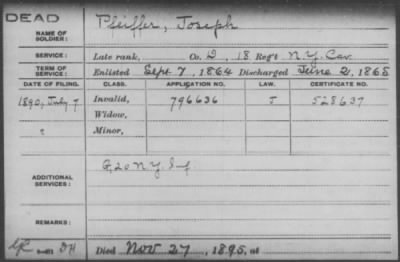 DEAD
NAME OF SOLDIER: Pfeiffer, Joseph
SERVICE: Late rank, Co. D, 18 Reg't N.Y. Cav.
TERM OF SERVICE: Enlisted Sept. 7, 1864 Discharged June 2, 1865
DATE OF FILING. CLASS. APPLICATION NO. LAW. CERTIFICATE NO.
1890, July 7 Invalid, 796636 J 528637
Widow,
Minor,
ADDITIONAL SERVICES: G, 20 N Y Inf
REMARKS:
Died Nov 27, 1895, at